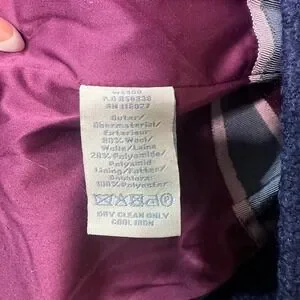 RN 116927
Outer/
Obermaterial/
Exterieur
80% Wool/
Wolle/Laine
20% Polyamide/
Polyamid
Lining/Futter/
Doublure
100% Polyester
DRY CLEAN ONLY
COOL IRON